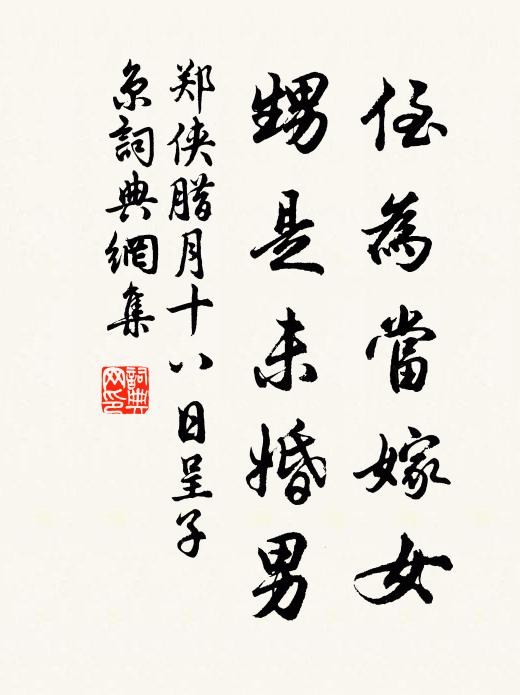 侄為當嫁女
甥是未婚男
郑侠腊月十八日呈子
京詞典網集
詞典
网印